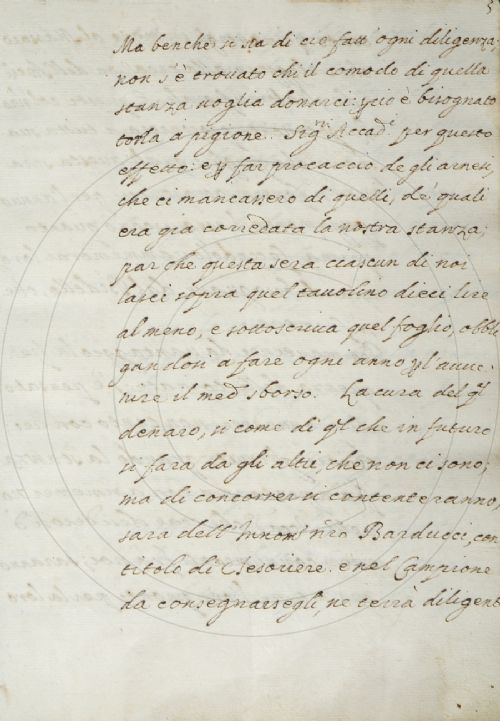 Ma benche si sia di ciò fatt' ogni diligenza,
non s'è trovato chi il comodo di quella
stanza voglia donarci: pciò è bisognato
torla à pigione. Sig.ri Accad.i per questo
effetto: e p far procaccio de gli arnesi,
che ci mancavero di quelli, de' quali
era gia corredata la nostra stanza;
par che questa sera ciascun di noi
lasci sopra quel tavolino dieci lire
al meno, e sottoscriva quel foglio, obbli
gandosi a fare ogni anno pl' avve-
nire il med.o sborso. La cura del ql
denaro, si come di ql che in futuro
si fara da gli altri, che non ci sono;
ma di concorrervi contenteranno,
sara dell' Innom.o nro Barducci, con
titolo di Tesoriere. e nel Campione
da consegnarsegli, ne terrà diligent